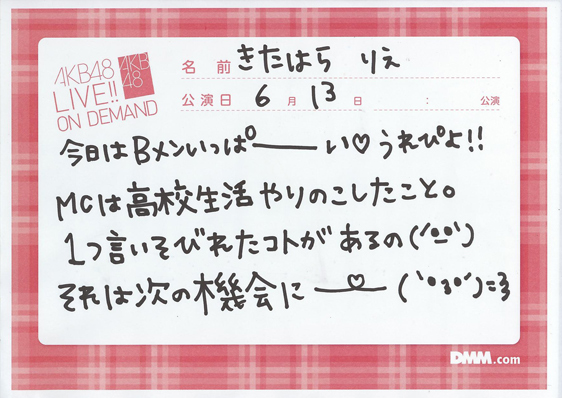 AKB48
LIVE!!
ON DEMAND
AKB
48
名前 きたはら りえ
公演日 6月13日 : 公演
今日はBメンいっぱ°――い♡うれぴよ!!
MCは高校生活やりのこしたこと。
1つ言いそびれたコトがあるの(´・_・`)
それは次の機会に―♡―(`・3・´)=3
DMM.com